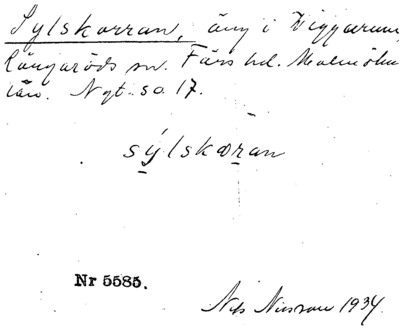 Sylskorran, äng i Viggarum,
Långaröds sn. Färs hd. Malmöhus
län. Nyt. so 17.
sýlskɔran
Nr 5585.
Nils Nilsson 1934